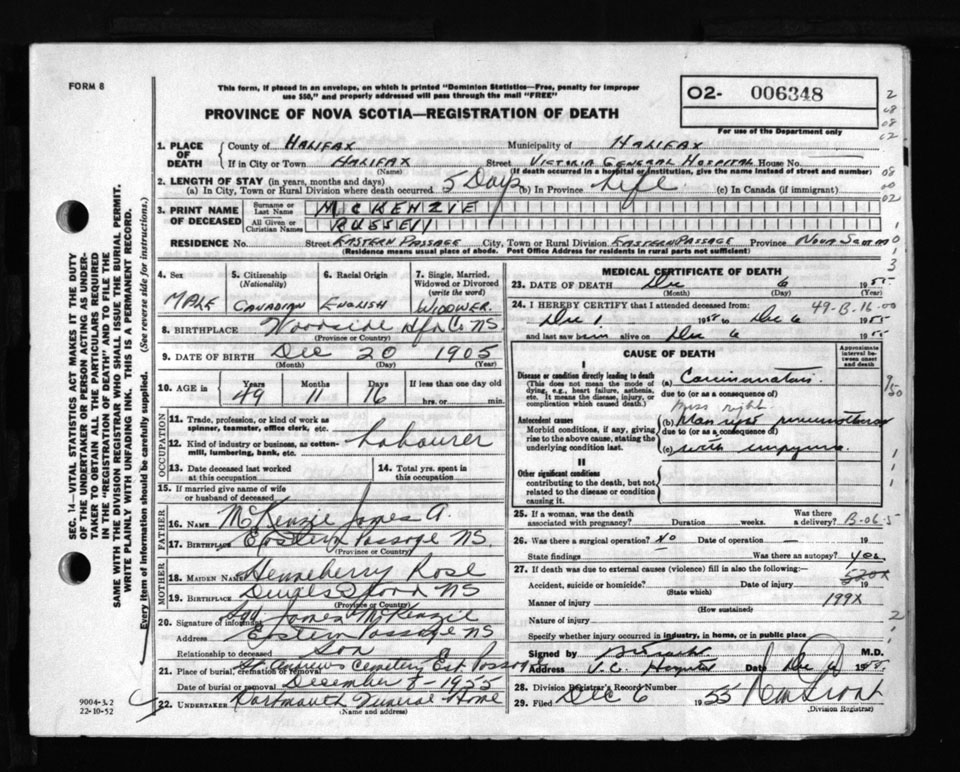 FORM 8
This form, if placed in an envelope, on which is printed "Dominion Statistics—Free, penalty for improper
use $50," and properly addressed will pass through the mail "FREE"
PROVINCE OF NOVA SCOTIA—REGISTRATION OF DEATH
O2- 006348
For use of the Department only
1. PLACE OF DEATH
County of HALIFAX Municipality of HALIFAX
If in City or Town HALIFAX Street VICTORIA GENERAL HOSPITAL House No.
(Name) (If death occurred in a hospital or institution, give the name instead of street and number)
2. LENGTH OF STAY (in years, months and days)
(a) In City, Town or Rural Division where death occurred 5 Days (b) In Province Life (c) In Canada (if immigrant)
3. PRINT NAME OF DECEASED
Surname or Last Name MCKENZIE
All Given or Christian Names RUSSELL
RESIDENCE No. Street EASTERN PASSAGE City, Town or Rural Division EASTERN PASSAGE Province NOVA SCOTIA
(Residence means usual place of abode. Post Office Address for residents in rural parts not sufficient)
4. Sex MALE
5. Citizenship (Nationality) CANADIAN
6. Racial Origin ENGLISH
7. Single, Married, Widowed or Divorced (write the word) WIDOWER
8. BIRTHPLACE Woodside Hfx Co. NS
(Province or Country)
9. DATE OF BIRTH Dec 20 1905
(Month) (Day) (Year)
10. AGE in Years 49 Months 11 Days 16 If less than one day old hrs. or min.
OCCUPATION
11. Trade, profession, or kind of work as spinner, teamster, office clerk, etc.
12. Kind of industry or business, as cotten-mill, lumbering, bank, etc.
Labourer
13. Date deceased last worked at this occupation
14. Total yrs. spent in this occupation
15. If married give name of wife or husband of deceased
FATHER
16. NAME McKenzie James A.
17. BIRTHPLACE Eastern Passage NS.
(Province or Country)
MOTHER
18. MAIDEN NAME Henneberry Rose
19. BIRTHPLACE NS
(Province or Country)
20. Signature of informant James McKenzie
Address Eastern Passage NS
Relationship to deceased Son
21. Place of burial, cremation or removal St Andrews Cemetery East. Passage
Date of burial or removal December 8-1955
22. UNDERTAKER Dartmouth Funeral Home
(Name and address)
MEDICAL CERTIFICATE OF DEATH
23. DATE OF DEATH Dec 6 1955
(Month) (Day) (Year)
24. I HEREBY CERTIFY that I attended deceased from: 49-B-16-00
Dec 1 1955 to Dec 6 1955
and last saw him alive on Dec 6 1955
CAUSE OF DEATH
Approximate interval between onset and death
I
Disease or condition directly leading to death
(This does not mean the mode of dying, e.g., heart failure, asthenia, etc. It means the disease, injury, or complication which caused death.)
(a) Carcinomatosis.
due to (or as a consequence of)
Antecedent causes
Morbid conditions, if any, giving rise to the above cause, stating the underlying condition last.
(b) pneumothorax
due to (or as a consequence of)
(c) with empyema.
II
Other significant conditions
contributing to the death, but not related to the disease or condition causing it.
25. If a woman, was the death associated with pregnancy? Duration weeks. Was there a delivery? B-06-5
26. Was there a surgical operation? No Date of operation — 19
State findings Was there an autopsy? Yes.
27. If death was due to external causes (violence) fill in also the following:—
Accident, suicide or homicide? Date of injury 19
(State which)
Manner of injury 199X
(How sustained)
Nature of injury
Specify whether injury occurred in industry, in home, or in public place
Signed by M.D.
Address V.G. Hospital Date Dec 6 1955.
28. Division Registrar's Record Number
29. Filed DEC 6 1955
(Division Registrar)
SEC. 14—VITAL STATISTICS ACT MAKES IT THE DUTY
OF THE UNDERTAKER OR PERSON ACTING AS UNDER-
TAKER TO OBTAIN ALL THE PARTICULARS REQUIRED
IN THE "REGISTRATION OF DEATH" AND TO FILE THE
SAME WITH THE DIVISION REGISTRAR WHO SHALL ISSUE THE BURIAL PERMIT.
WRITE PLAINLY WITH UNFADING INK. THIS IS A PERMANENT RECORD.
Every item of information should be carefully supplied. (See reverse side for instructions.)
9004-3.2
22-10-52